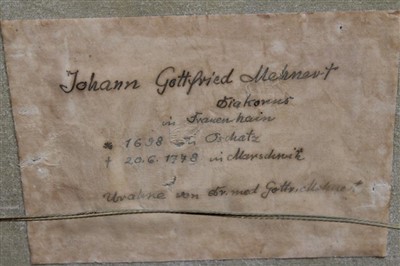 Johann Gottfried Mehnert
Diakonus
in Frauenhain
* 1698 in Oschatz
† 20.6.1778 in
Urahne von Dr. med. Gottfr. Mehnert